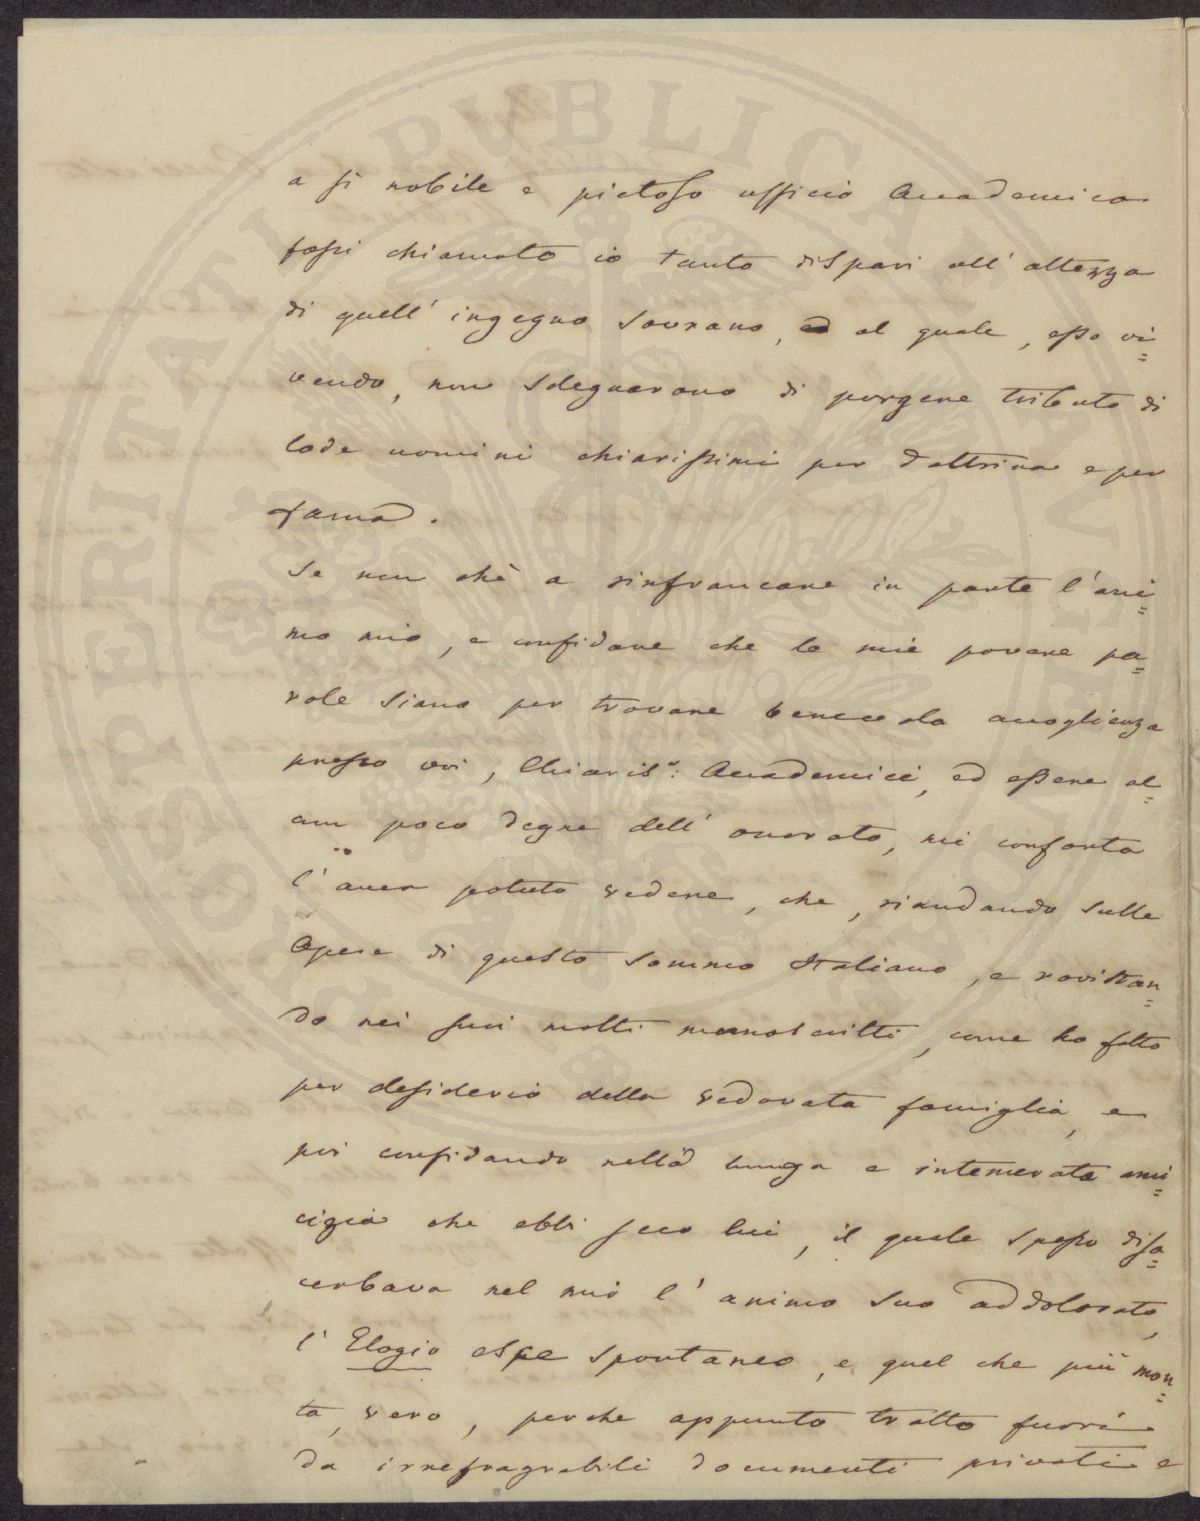 a sì nobile e pietoso ufficio Accademico
fossi chiamato io tanto dispari all'altezza
di quell'ingegno sovrano, al quale, esso vi=
vendo, non sdegnarono di porgere tributo di
lode uomini chiarissimi per dottrina e per
fama.
Se non chè a rinfrancare in parte l'ani=
mo mio, e confidare che le mie povere pa=
role siano per trovare benevola accoglienza
presso voi, Chiaris.i: Accademici, ed essere al=
cun poco degne dell'onorato, mi conforta
l'aver potuto vedere, che, riandando sulle
Opere di questo sommo Italiano, e rovistan=
do nei suoi molti manoscritti, come ho fatto
per desiderio della vedovata famiglia, e
poi confidando nella lunga e intemerata ami=
cizia che ebbi seco lui, il quale spesso disa=
cerbava nel mio l'animo suo addolorato,
l'Elogio esce spontaneo, e, quel che più mon=
ta, vero, perche appunto tratto fuori
da irrefragabili documenti privati e
PROSPERITATI PUBLICAE